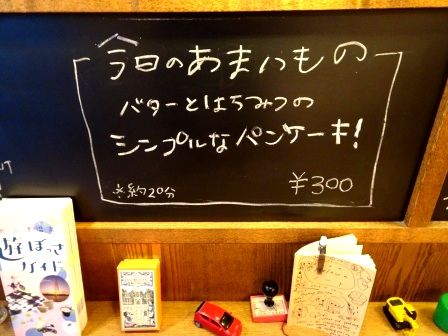 今日のあまいもの
バターとはちみつの
シンプルなパンケーキ!
※約20分
¥300
遊ぼっさ
ガイド